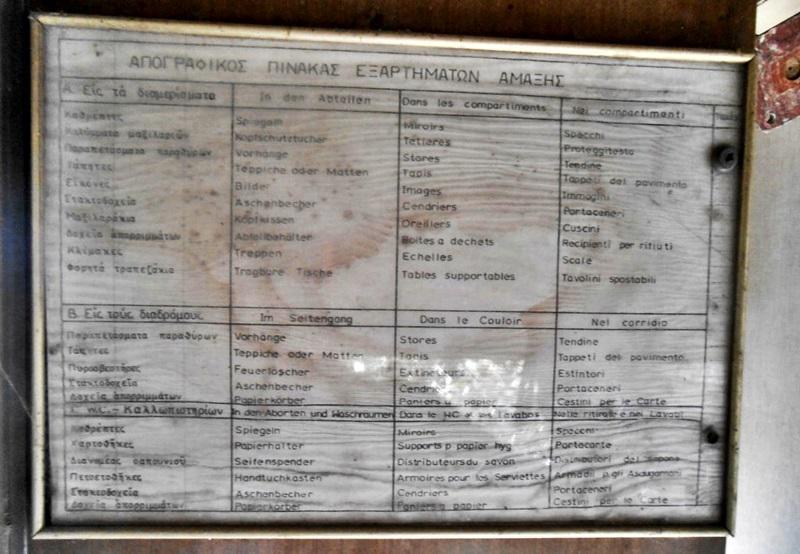 ΑΠΟΓΡΑΦΙΚΟΣ ΠΙΝΑΚΑΣ ΕΞΑΡΤΗΜΑΤΩΝ ΑΜΑΞΗΣ
Α. Εἰς τά διαμερίσματα In den Abteilen Dans les compartiments Nei compartimenti
Καθρέπτες Spiegeln Miroirs Specchi
Καλύμματα μαξιλαριῶν Kopfschutztucher Tetieres Proteggitesta
Παραπετάσματα παραθύρων Vorhänge Stores Tendine
Τάπητες Teppiche oder Matten Tapis Tappeti del pavimento
Εἰκόνες Bilder Images Immagini
Σταχτοδοχεῖα Aschenbecher Cendriers Portaceneri
Μαξιλαράκια Kopfkissen Oreillers Cuscini
Δοχεῖα ἀπορριμμάτων Abfallbehälter Boites a dechets Recipienti per rifiuti
Κλίμακες Treppen Echelles Scale
Φορητά τραπεζάκια Tragbare Tische Tables supportables Tavolini spostabili
Β. Εἰς τούς διαδρόμους Im Seitengang Dans le Couloir Nel corridio
Παραπετάσματα παραθύρων Vorhänge Stores Tendine
Τάπητες Teppiche oder Matten Tapis Tappeti del pavimento
Πυροσβεστήρες Feuerloscher Extincteurs Estintori
Σταχτοδοχεῖα Aschenbecher Cendriers Portaceneri
Δοχεῖα ἀπορριμμάτων Papierkörber Paniers a papier Cestini per le Carte
W.C. - Καλλωπιστηρίων In den Aborten und Waschraumen Dans le WC Lavabos Nelle ritirate e nei Lavabi
Καθρέπτες Spiegeln Miroirs Specchi
Χαρτοθῆκες Papierhalter Supports p papier hyg Portacarte
Διανομέας σαπουνιοῦ Seifenspender Distributeurs du savon Distributori del sapone
Πετσετοθῆκες Handtuchkasten Armoires pour les Serviettes Armadi p. gli Asciugamani
Σταχτοδοχεῖα Aschenbecher Cendriers Portaceneri
Δοχεῖα ἀπορριμμάτων Papierkörber Paniers a papier Cestini per le Carte